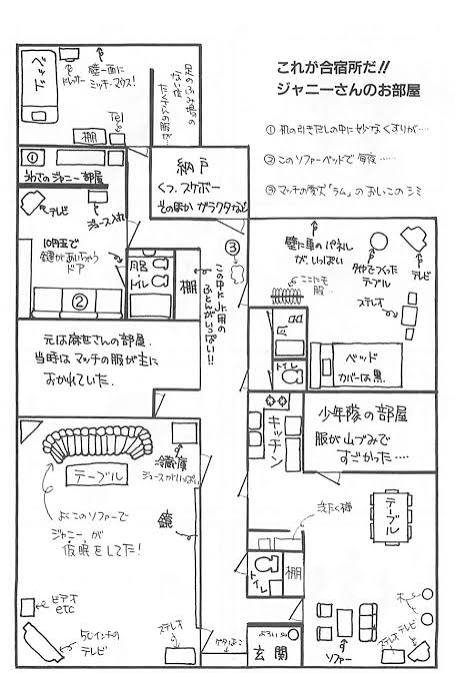 これが合宿所だ!!
ジャニーさんのお部屋
① 机の引きだしの中に妙なくすりが…
② このソファーベッドで毎夜……
③ マッチの愛犬「ラム」のおしっこのシミ
ベッド
ドレッサー
壁一面に
ミッキーマウス!
足のふみ場の
ない位
たくさんの服が…
棚
Tel
①
うわさのジャニー部屋
テレビ
ジュース入れ
10円玉で
鍵があいちゃう
ドア
②
納戸
くつ、スケボー
そのほか ガラクタなど
風呂
トイレ
棚
この中にJr.用の
ふとんがいっぱい!!
③
壁に車のパネル
が、いっぱい
ここにも
服
タイヤでつくった
テーブル
テレビ
ステレオ
トイレ
ベッド
カバーは黒
元は麻世さんの部屋
当時はマッチの服が主に
おかれていた.
キッチン
少年隊の部屋
服が山づみで
すごかった…
冷蔵庫
ジュースがいっぱい
テーブル
よくこのソファーで
ジャニーが
仮眠をしてた!
鏡
洗たく機
テーブル
トイレ
棚
ビデオ
etc
50インチの
テレビ
ステレオ
ゲタばこ
よろいかぶと
玄関
ソファー
木
テレビ
ステレオ